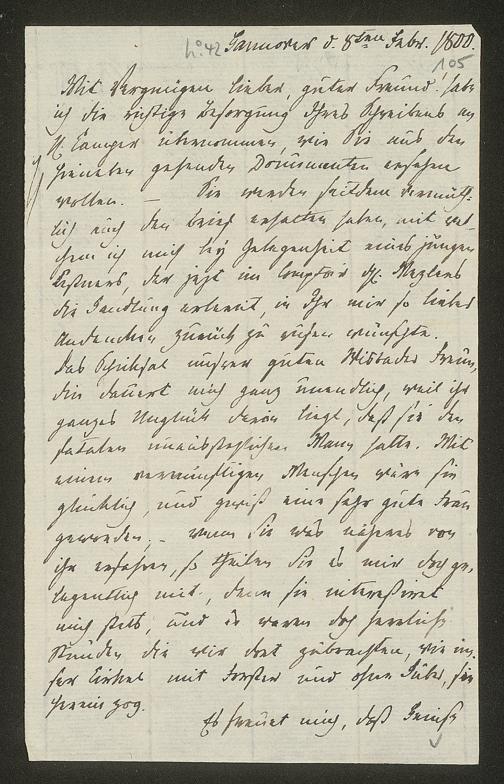 No. 42 Hannover d. 8ten Febr. 1800.
105
Mit Vergnügen lieber, guter Freund habe
ich die richtige Besorgung Ihres Schreibens an
H. Camper übernommen, wie Sie aus den
hieneben gehenden Documenten ersehen
wollen. — Sie werden seitdem vermuth-
lich auch den Brief erhalten haben, mit wel-
chem ich mich bey Gelegenheit eines jungen
der jezt im Comptoir H.
die Handlung erlernt, in Ihr mir so liebes
Andenken zurück zu rufen wünschte.
Das Schiksal unsrer guten Freun-
din dauert mich ganz unendlich, weil ihr
ganzes Unglük darin liegt, daß sie den
fatalen unausstehlichen Mann hatte. Mit
einem vernünftigen Menschen wäre sie
glücklich, und gewiß eine sehr gute Frau
geworden. — Wenn Sie was näheres von
ihr erfahren, so theilen Sie es mir doch ge-
legentlich mit, denn sie interessirt
mich stets, und es waren doch herrliche
Stunden die wir dort zubrachten, wie un-
ser Cirkel mit Forster und
Es freuet mich, daß